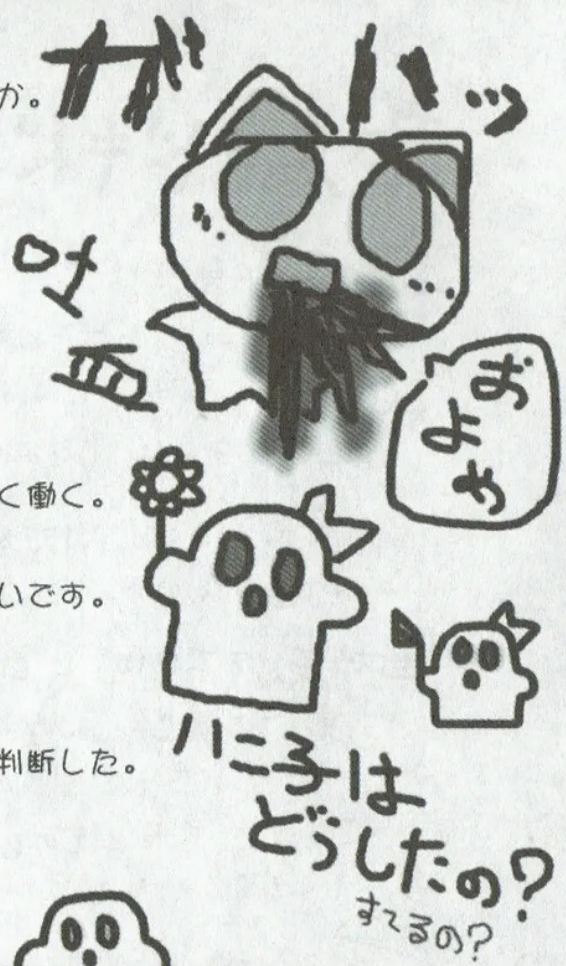 ガハッ
か。
吐血
およや
く働く。
いです。
判断した。
ハニ子は
どうしたの?
すてるの?